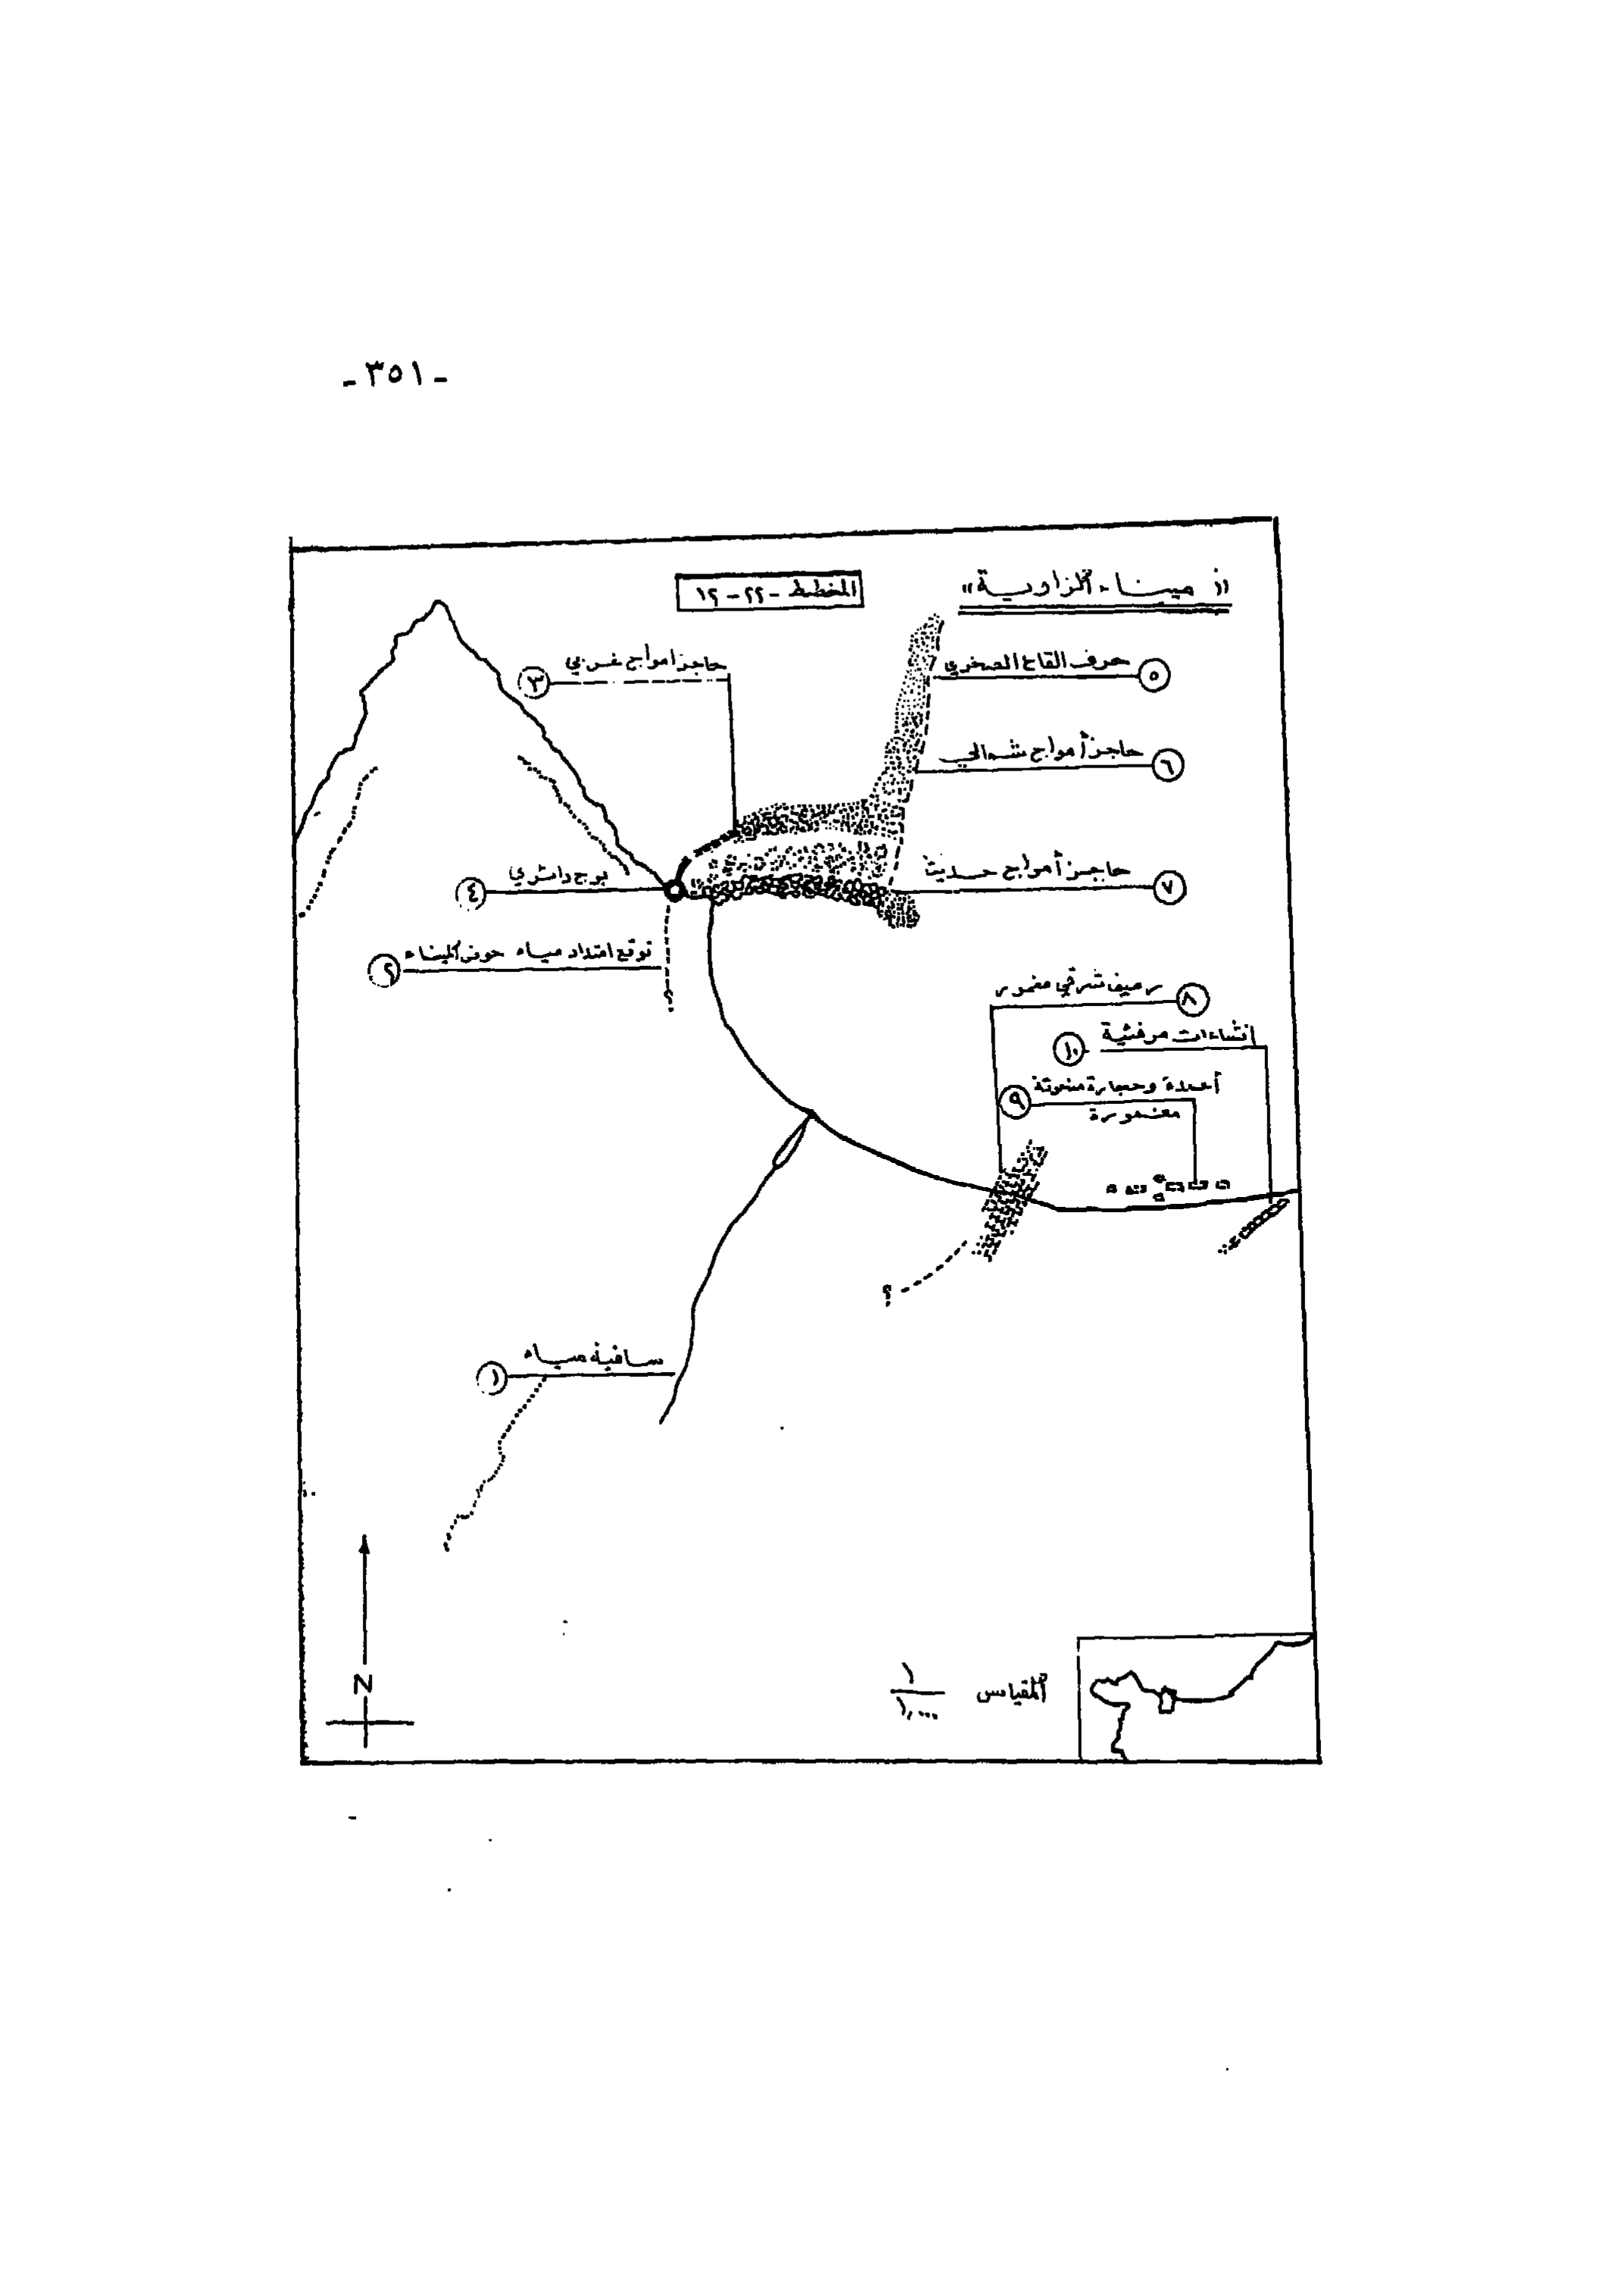 - ٣٥١ -
«ميناء الزاوية»
المخطط - ٢٢ - ١٢
٣ حاجز أمواج غربي
٥ حرف القاع الصخري
٦ حاجز أمواج شمالي
٧ حاجز أمواج حديث
٤ برج دائري
٢ توقع امتداد مياه حوض الميناء
؟
٨ رصيف شرقي مغمور
١٠ إنشاءات مرفئية
٩ أعمدة وحجارة منحوتة
مغمورة
؟
١ ساقية مياه
N
المقياس ١/١,٠٠٠